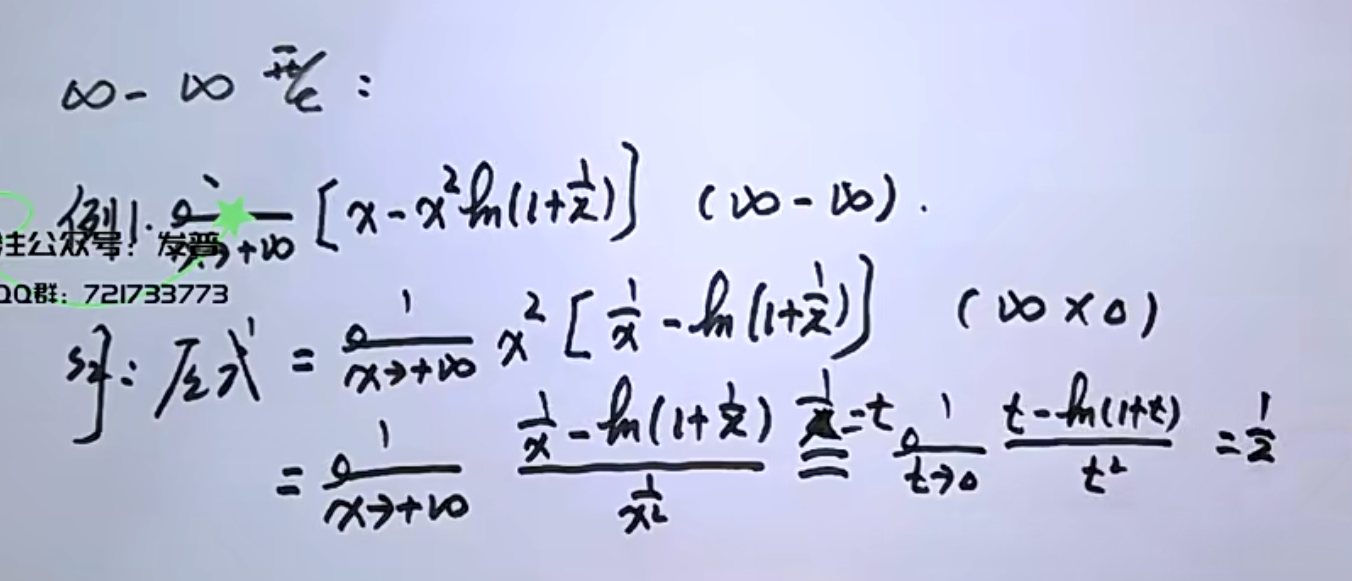 ∞ - ∞ 型:
例1. lim x→+∞ [x - x² ln(1+1/x)] (∞ - ∞).
注公众号:发普
QQ群:721733773
解: 原式 = lim x→+∞ x² [1/x - ln(1+1/x)] (∞ × 0)
= lim x→+∞ (1/x - ln(1+1/x))/(1/x²) =(1/x=t)= lim t→0 (t - ln(1+t))/t² = 1/2